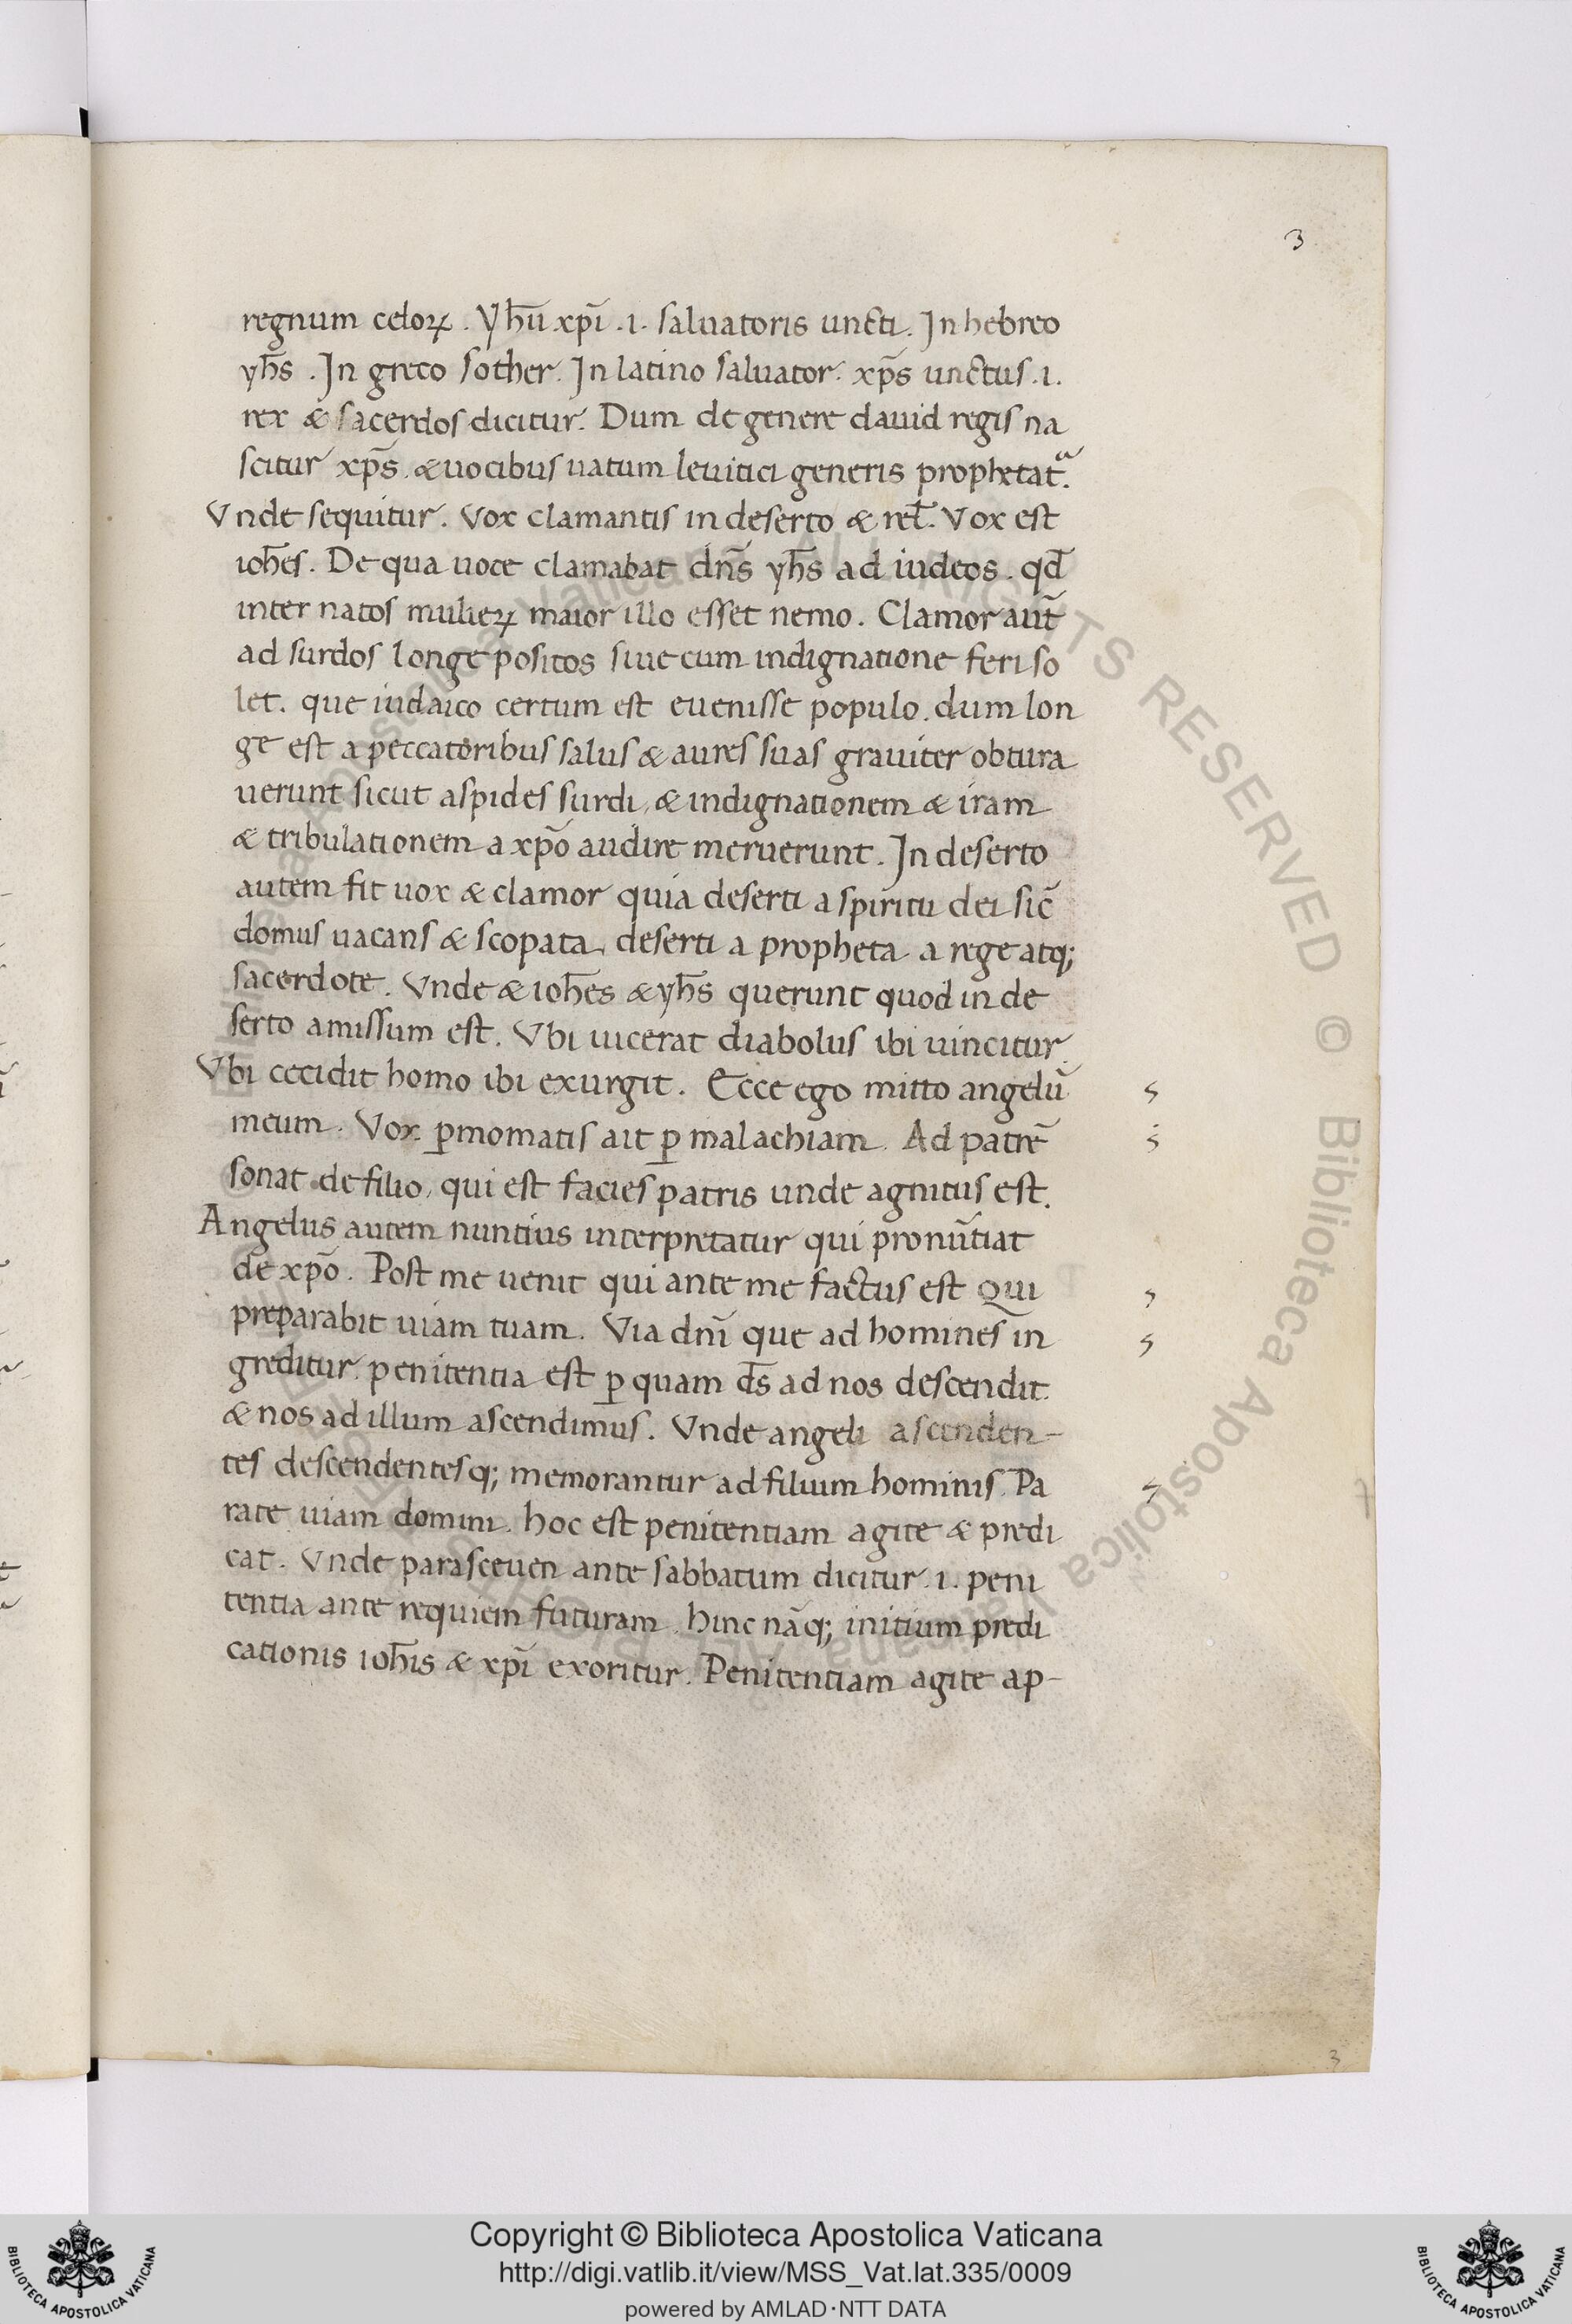 3
regnum celoꝝ. Yhu̅ xpi̅ .i. saluatoris uncti. In hebreo
yhs̅. In greco sother. In latino saluator. xps̅ unctus .i.
rex & sacerdos dicitur. Dum de genere dauid regis na
scitur xps̅. & uocibus uatum leuitici generis prophetatᵃ.
Vnde sequitur. Vox clamantis in deserto & rel̅. Vox est
ioh̅es. De qua uoce clamabat dn̅s yhs̅ ad iudeos. qd̅
inter natos mulieꝝ maior illo esset nemo. Clamor aut̅
ad surdos longe positos siue cum indignatione feri so
let. que iudaico certum est euenisse populo. dum lon
ge est a peccatoribus salus & aures suas grauiter obtura
uerunt sicut aspides surdi, & indignationem & iram
& tribulationem a xpo̅ audire meruerunt. In deserto
autem fit uox & clamor quia deserti a spiritu dei sic̅
domus uacans & scopata, deserti a propheta a rege atq;
sacerdote. Vnde & ioh̅es & yhs̅ querunt quod in de
serto amissum est. Vbi uicerat diabolus ibi uincitur.
Vbi cecidit homo ibi exurgit. Ecce ego mitto angelu̅
meum. Vox ꝑmomatis ait ꝑ malachiam. Ad patre̅
sonat de filio, qui est facies patris unde agnitus est.
Angelus autem nuntius interpretatur qui pronu̅tiat
de xpo̅. Post me uenit qui ante me factus est Qui
preparabit uiam tuam. Via dni̅ que ad homines in
greditur. penitentia est ꝑ quam ds̅ ad nos descendit.
& nos ad illum ascendimus. Vnde angeli ascenden-
tes descendentesq; memorantur ad filium hominis. Pa
rate uiam domini. hoc est penitentiam agite & predi
cat. Vnde parasceuen ante sabbatum dicitur .i. peni
tentia ante requiem futuram. hinc na̅q; initium predi
cationis ioh̅is & xpi̅ exoritur. Penitentiam agite ap-
3
Copyright © Biblioteca Apostolica Vaticana
http://digi.vatlib.it/view/MSS_Vat.lat.335/0009
powered by AMLAD·NTT DATA
BIBLIOTECA APOSTOLICA VATICANA
BIBLIOTECA APOSTOLICA VATICANA